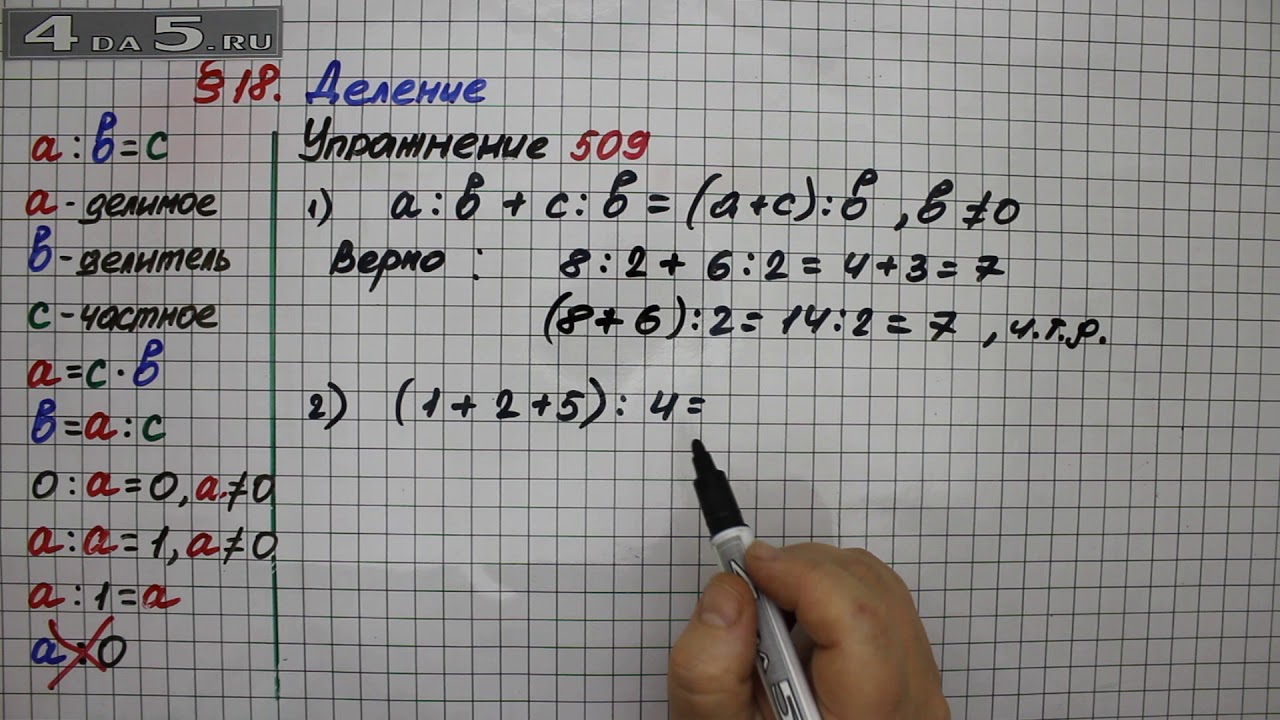 4DA5.RU
§ 18. Деление
a : b = c
a - делимое
b - делитель
c - частное
a = c · b
b = a : c
0 : a = 0, a ≠ 0
a : a = 1, a ≠ 0
a : 1 = a
a : 0
Упражнение 509
1) a : b + c : b = (a + c) : b , b ≠ 0
Верно : 8 : 2 + 6 : 2 = 4 + 3 = 7
(8 + 6) : 2 = 14 : 2 = 7 , ч.т.д.
2) (1 + 2 + 5) : 4 =